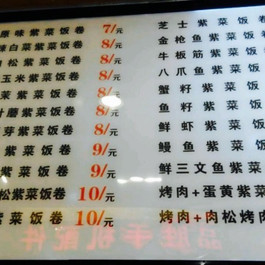 原味紫菜饭卷 7/元
辣白菜紫菜饭卷 8/元
肉松紫菜饭卷 8/元
玉米紫菜饭卷 8/元
紫菜饭卷 8/元
磨紫菜饭卷 8/元
芽紫菜饭卷 8/元
紫菜饭卷 9/元
紫菜饭卷 9/元
松紫菜饭卷 10/元
紫菜饭卷 10/元
芝士紫菜饭
金枪鱼紫菜
牛板筋紫菜
八爪鱼紫菜
蟹籽紫菜
鱼籽紫菜
虾仁紫菜
鳗鱼紫菜
鲜三文鱼紫菜
烤肉+蛋黄紫菜
烤肉+肉松烤肉